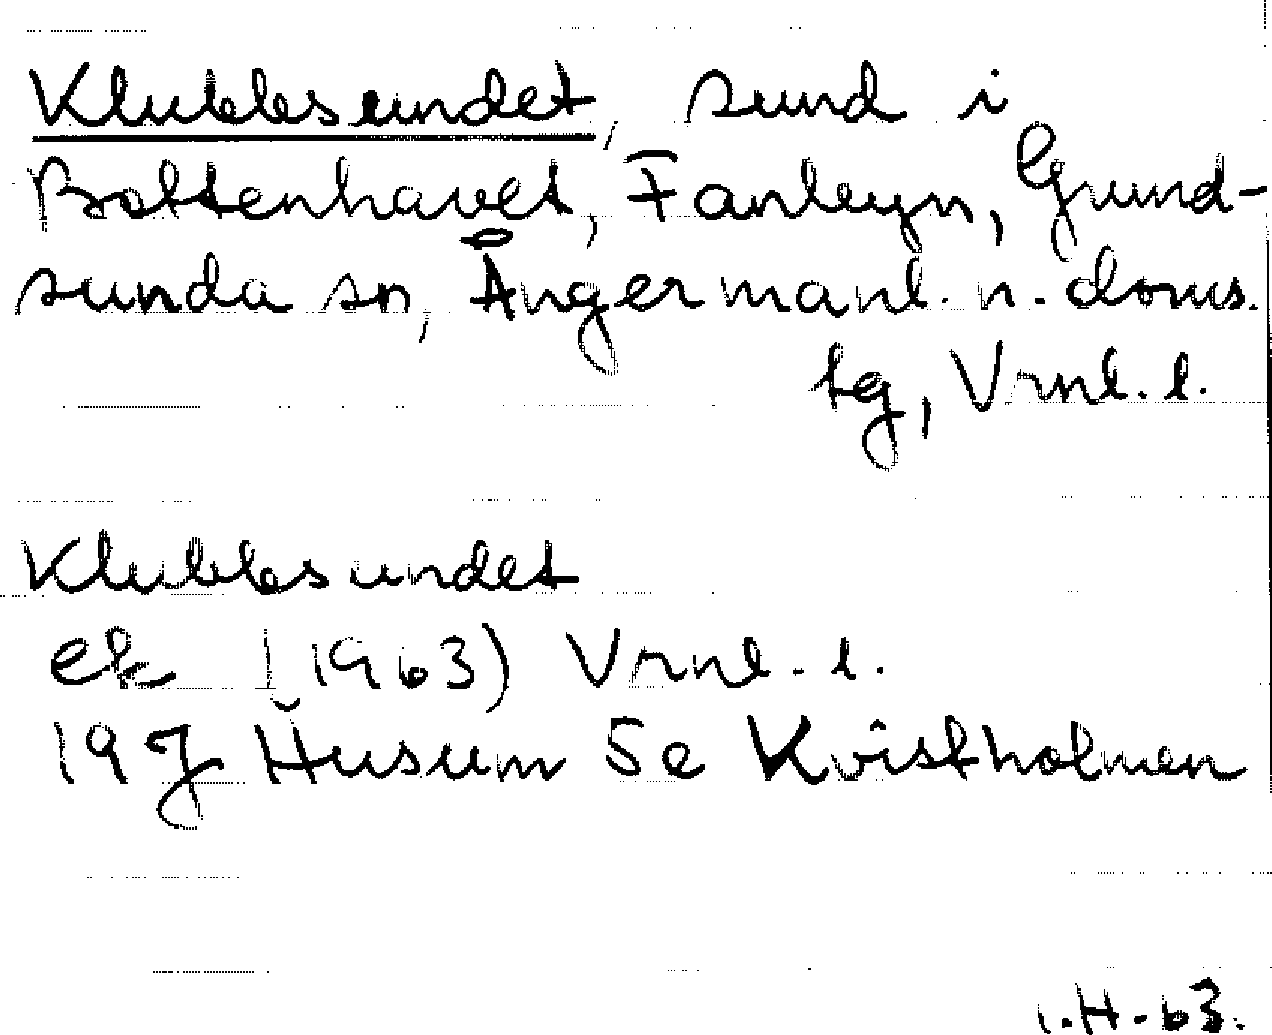 Klubbsundet, sund i
Bottenhavet, Fanbyn, Grund-
sunda sn, Ångermanl. n. doms.
tg, Vrnl. l.
Klubbsundet
ek (1963) Vrnl. l.
19 J Husum 5e Kvistholmen
I.H. 63.